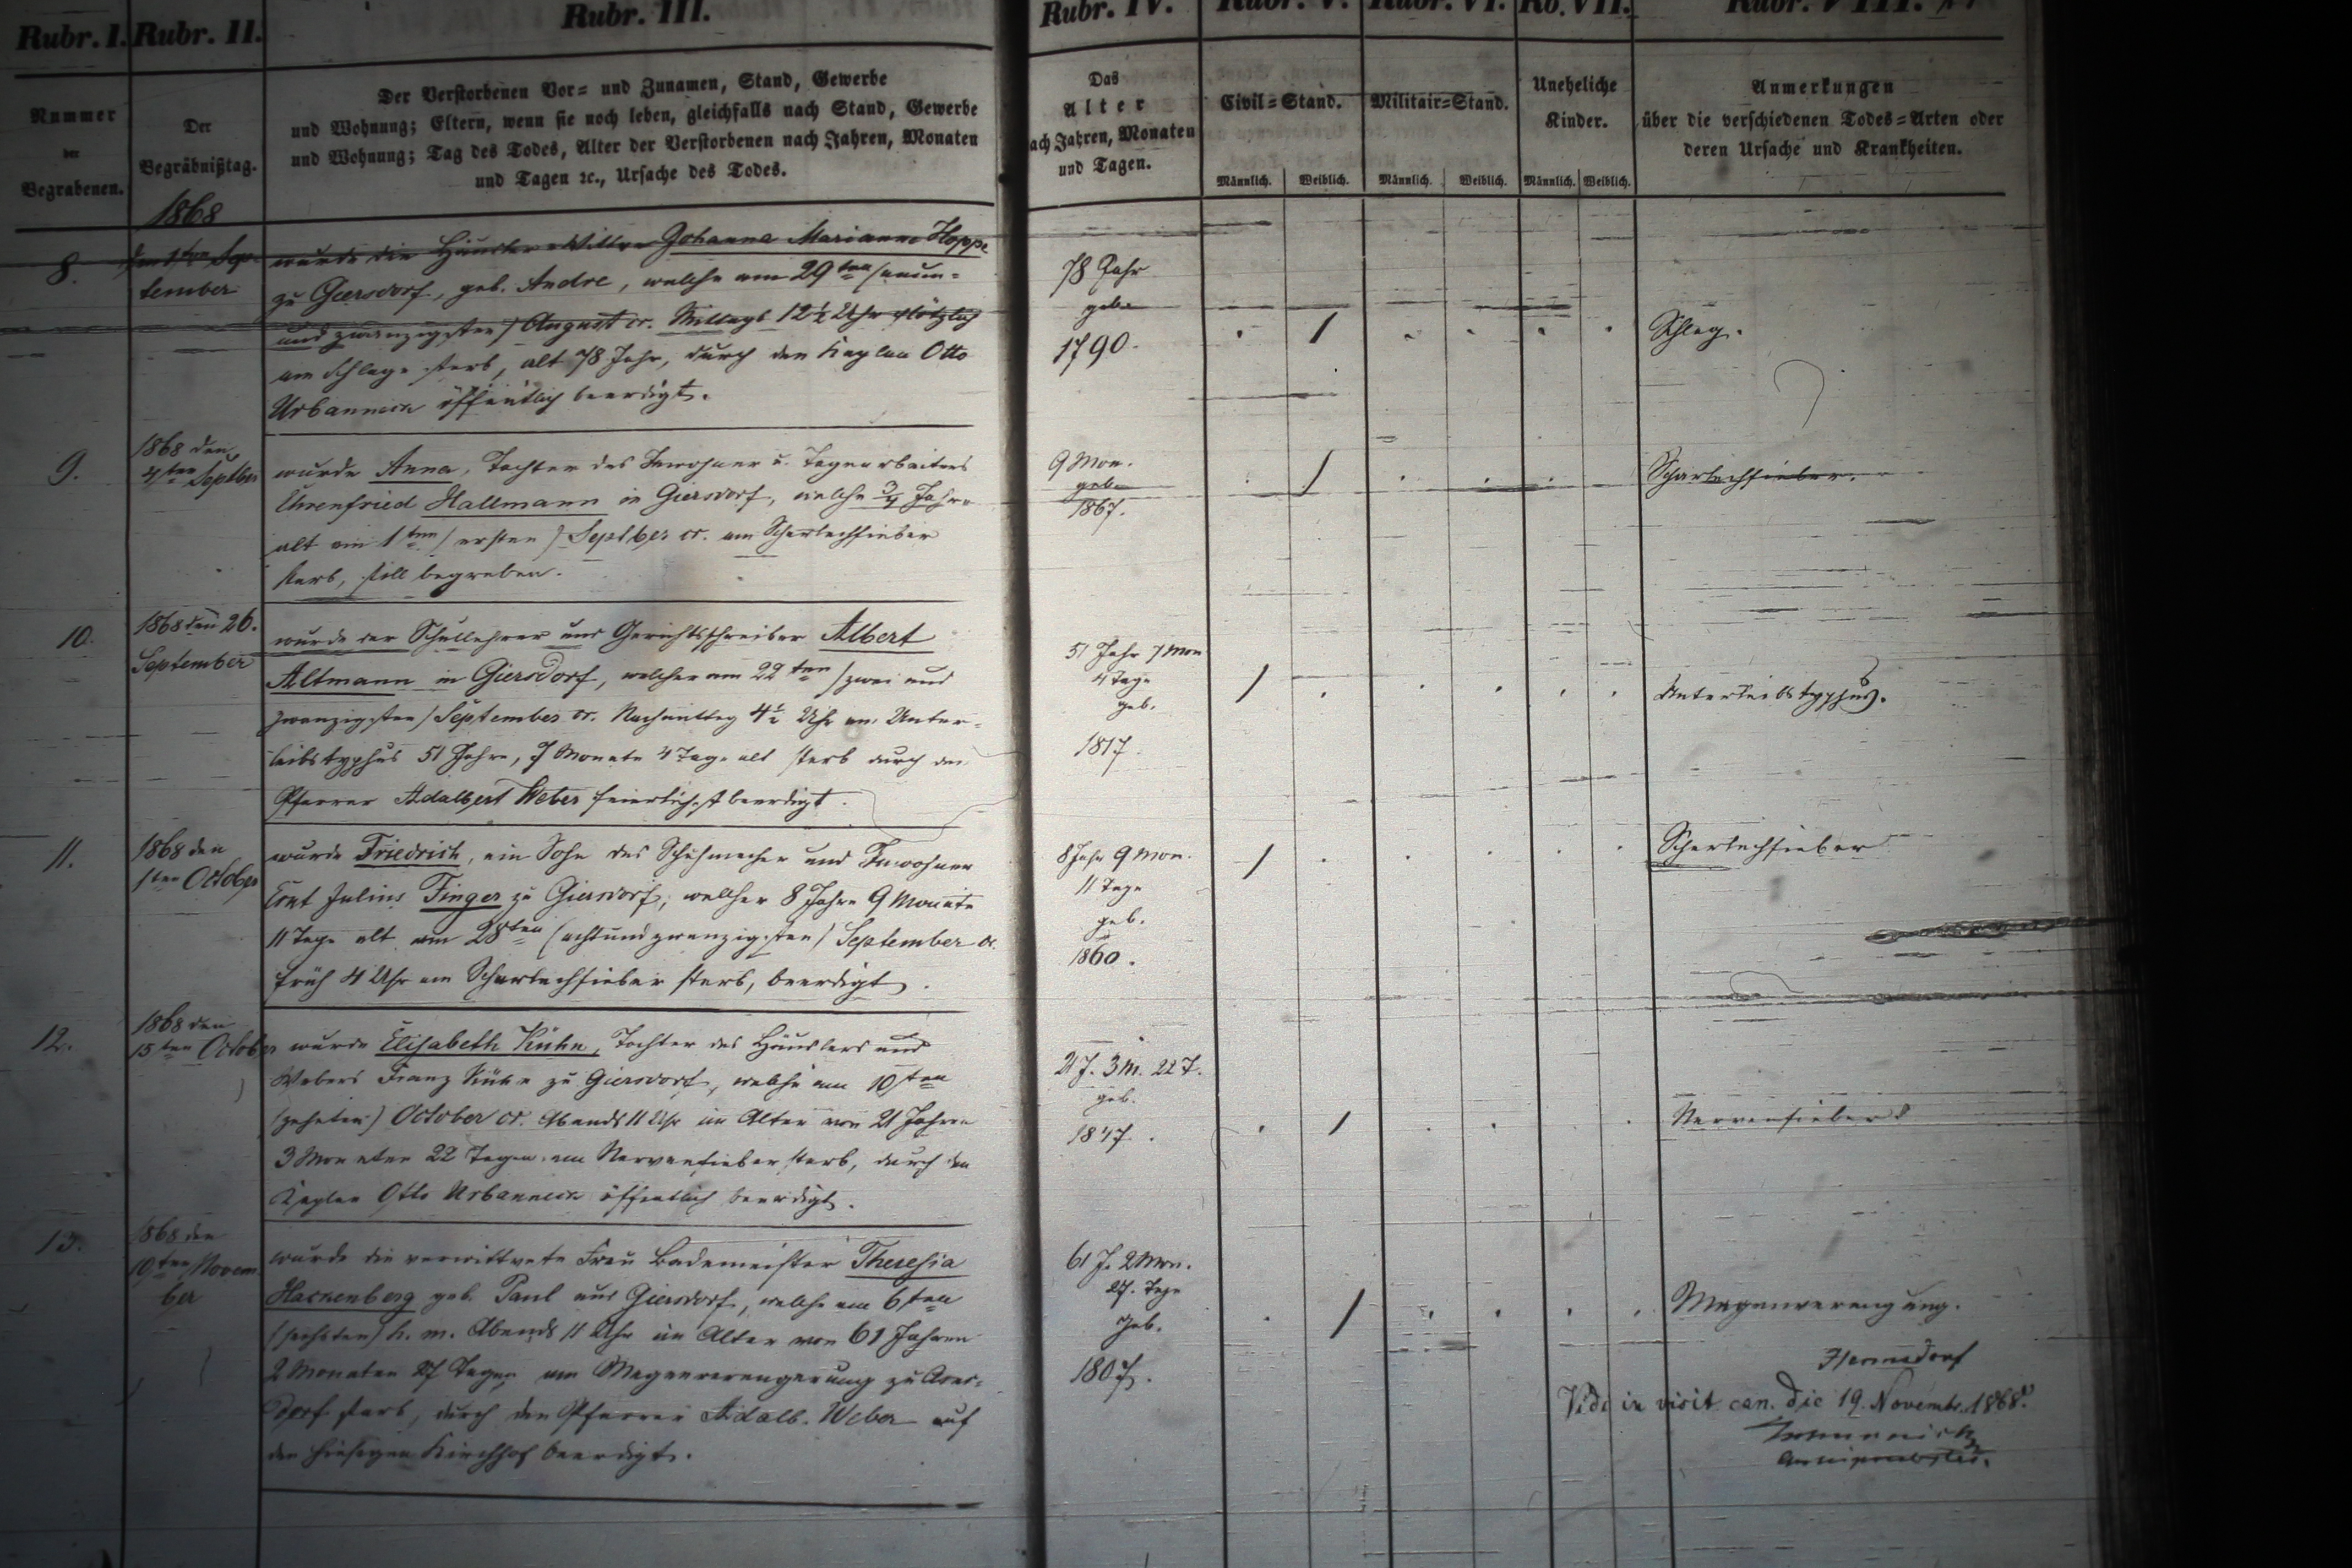 Rubr. I. Rubr. II. Rubr. III. Rubr. IV. Rubr. V. Rubr. VI. Rb. VII. Rubr. VIII.
Nummer
der
Begrabenen.
Der
Begräbnißtag.
Der Verstorbenen Vor- und Zunamen, Stand, Gewerbe
und Wohnung; Eltern, wenn sie noch leben, gleichfalls nach Stand, Gewerbe
und Wohnung; Tag des Todes, Alter der Verstorbenen nach Jahren, Monaten
und Tagen ꝛc., Ursache des Todes.
Das
Alter
nach Jahren, Monaten
und Tagen.
Civil-Stand.
Männlich. Weiblich.
Militair-Stand.
Männlich. Weiblich.
Uneheliche
Kinder.
Männlich. Weiblich.
Anmerkungen
über die verschiedenen Todes-Arten oder
deren Ursache und Krankheiten.
1868
8.
den 1ten Sep-
tember
wurde die Häusler Wittwe Johanna Marianne Hoppe
zu Giersdorf, geb. Andre, welche am 29ten (neun-
und zwanzigsten) August cr. Mittags 12½ Uhr plötzlich
am Schlage starb, alt 78 Jahr, durch den Kaplan Otto
Urbanneck öffentlich beerdigt.
78 Jahr
geb.
1790.
Schlag.
9.
1868 den
4ten Septber
wurde Anna, Tochter des Inwohner u. Tagearbeiters
Ehrenfried Hallmann in Giersdorf, welche ¾ Jahre
alt am 1ten (ersten) Septber cr. am Scharlachfieber
starb, still begraben.
9 Mon.
geb.
1867.
Scharlachfieber.
10.
1868 den 26.
September
wurde der Schullehrer und Gerichtsschreiber Albert
Altmann in Giersdorf, welcher am 22ten (zwei und
zwanzigsten) September cr. Nachmittag 4½ Uhr am Unter-
leibstyphus 51 Jahre, 7 Monate 4 Tage alt starb durch den
Pfarrer Adalbert Weber feierlichst beerdigt.
51 Jahr 7 Mon
4 Tage
geb.
1817.
Unterleibstyphus.
11.
1868 den
1ten October
wurde Friedrich, ein Sohn des Schuhmacher und Inwohner
Julius Finger zu Giersdorf, welcher 8 Jahre 9 Monate
11 Tage alt am 28ten (achtundzwanzigsten) September cr.
früh 4 Uhr am Scharlachfieber starb, beerdigt.
8 Jahr 9 Mon.
11 Tage
geb.
1860.
Scharlachfieber
12.
1868 den
15ten October
wurde Elisabeth Kühn, Tochter des Häuslers und
Webers Franz Kühn zu Giersdorf, welche am 10ten
(zehnten) October cr. Abends 11 Uhr im Alter von 21 Jahren
3 Monaten 22 Tagen am Nervenfieber starb, durch den
Kaplan Otto Urbanneck öffentlich beerdigt.
21 J. 3 M. 22 T.
geb.
1847.
Nervenfieber
13.
1868 den
10ten Novem
ber
wurde die verwittwete Frau Bademeister Theresia
Hackenberg geb. Paul aus Giersdorf, welche am 6ten
(sechsten) h. m. Abends 11 Uhr im Alter von 61 Jahren
2 Monaten 27 Tagen am Magenverengerung zu
dorf starb, durch den Pfarrer Adalb. Weber auf
den hiesigen Kirchhof beerdigt.
61 J. 2 Mon.
27. Tage
Geb.
1807.
Magenverengung.
Hermsdorf
Vidi in visit. can. die 19. Novembr. 1868.